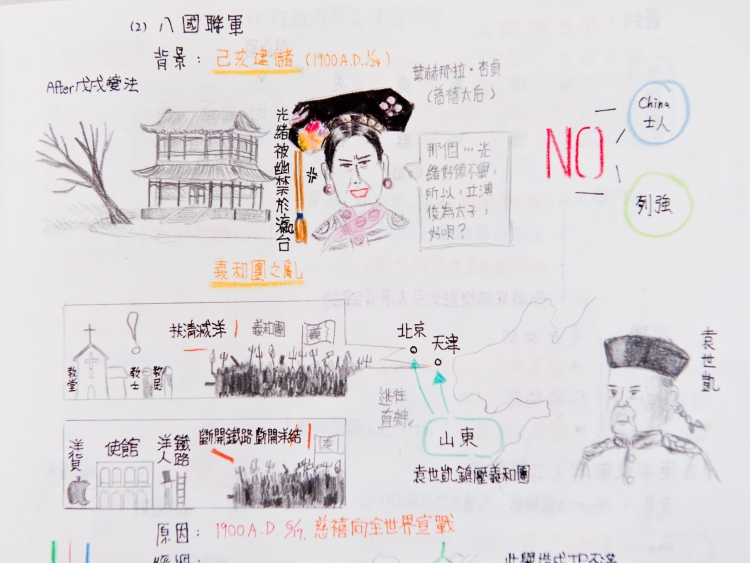 (2) 八國聯軍
背景: 己亥建儲 (1900 A.D. 1/24)
After戊戌變法
葉赫那拉·杏貞
(慈禧太后)
光緒被幽禁於瀛台
那個…光
緒好像不乖,
所以,立溥
俊為太子,
好唄?
NO
China
士人
列強
義和團之亂
扶清滅洋
義和團
義
教堂
教士
教民
北京
天津
逃往
直隸
山東
袁世凱鎮壓義和團
袁世凱
斷開鐵路,斷開洋結
義
洋貨
使館
洋人
鐵路
原因: 1900 A.D. 6/17, 慈禧向全世界宣戰